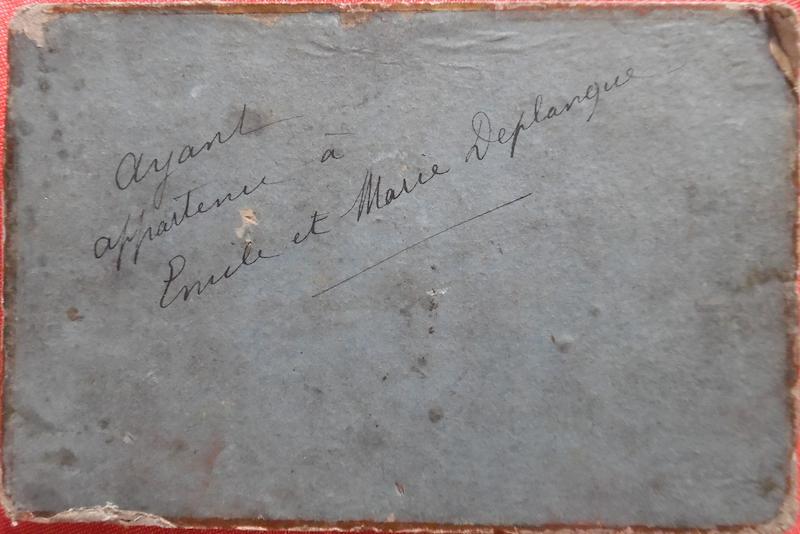 Ayant
appartenu à
Emile et Marie Deplanque